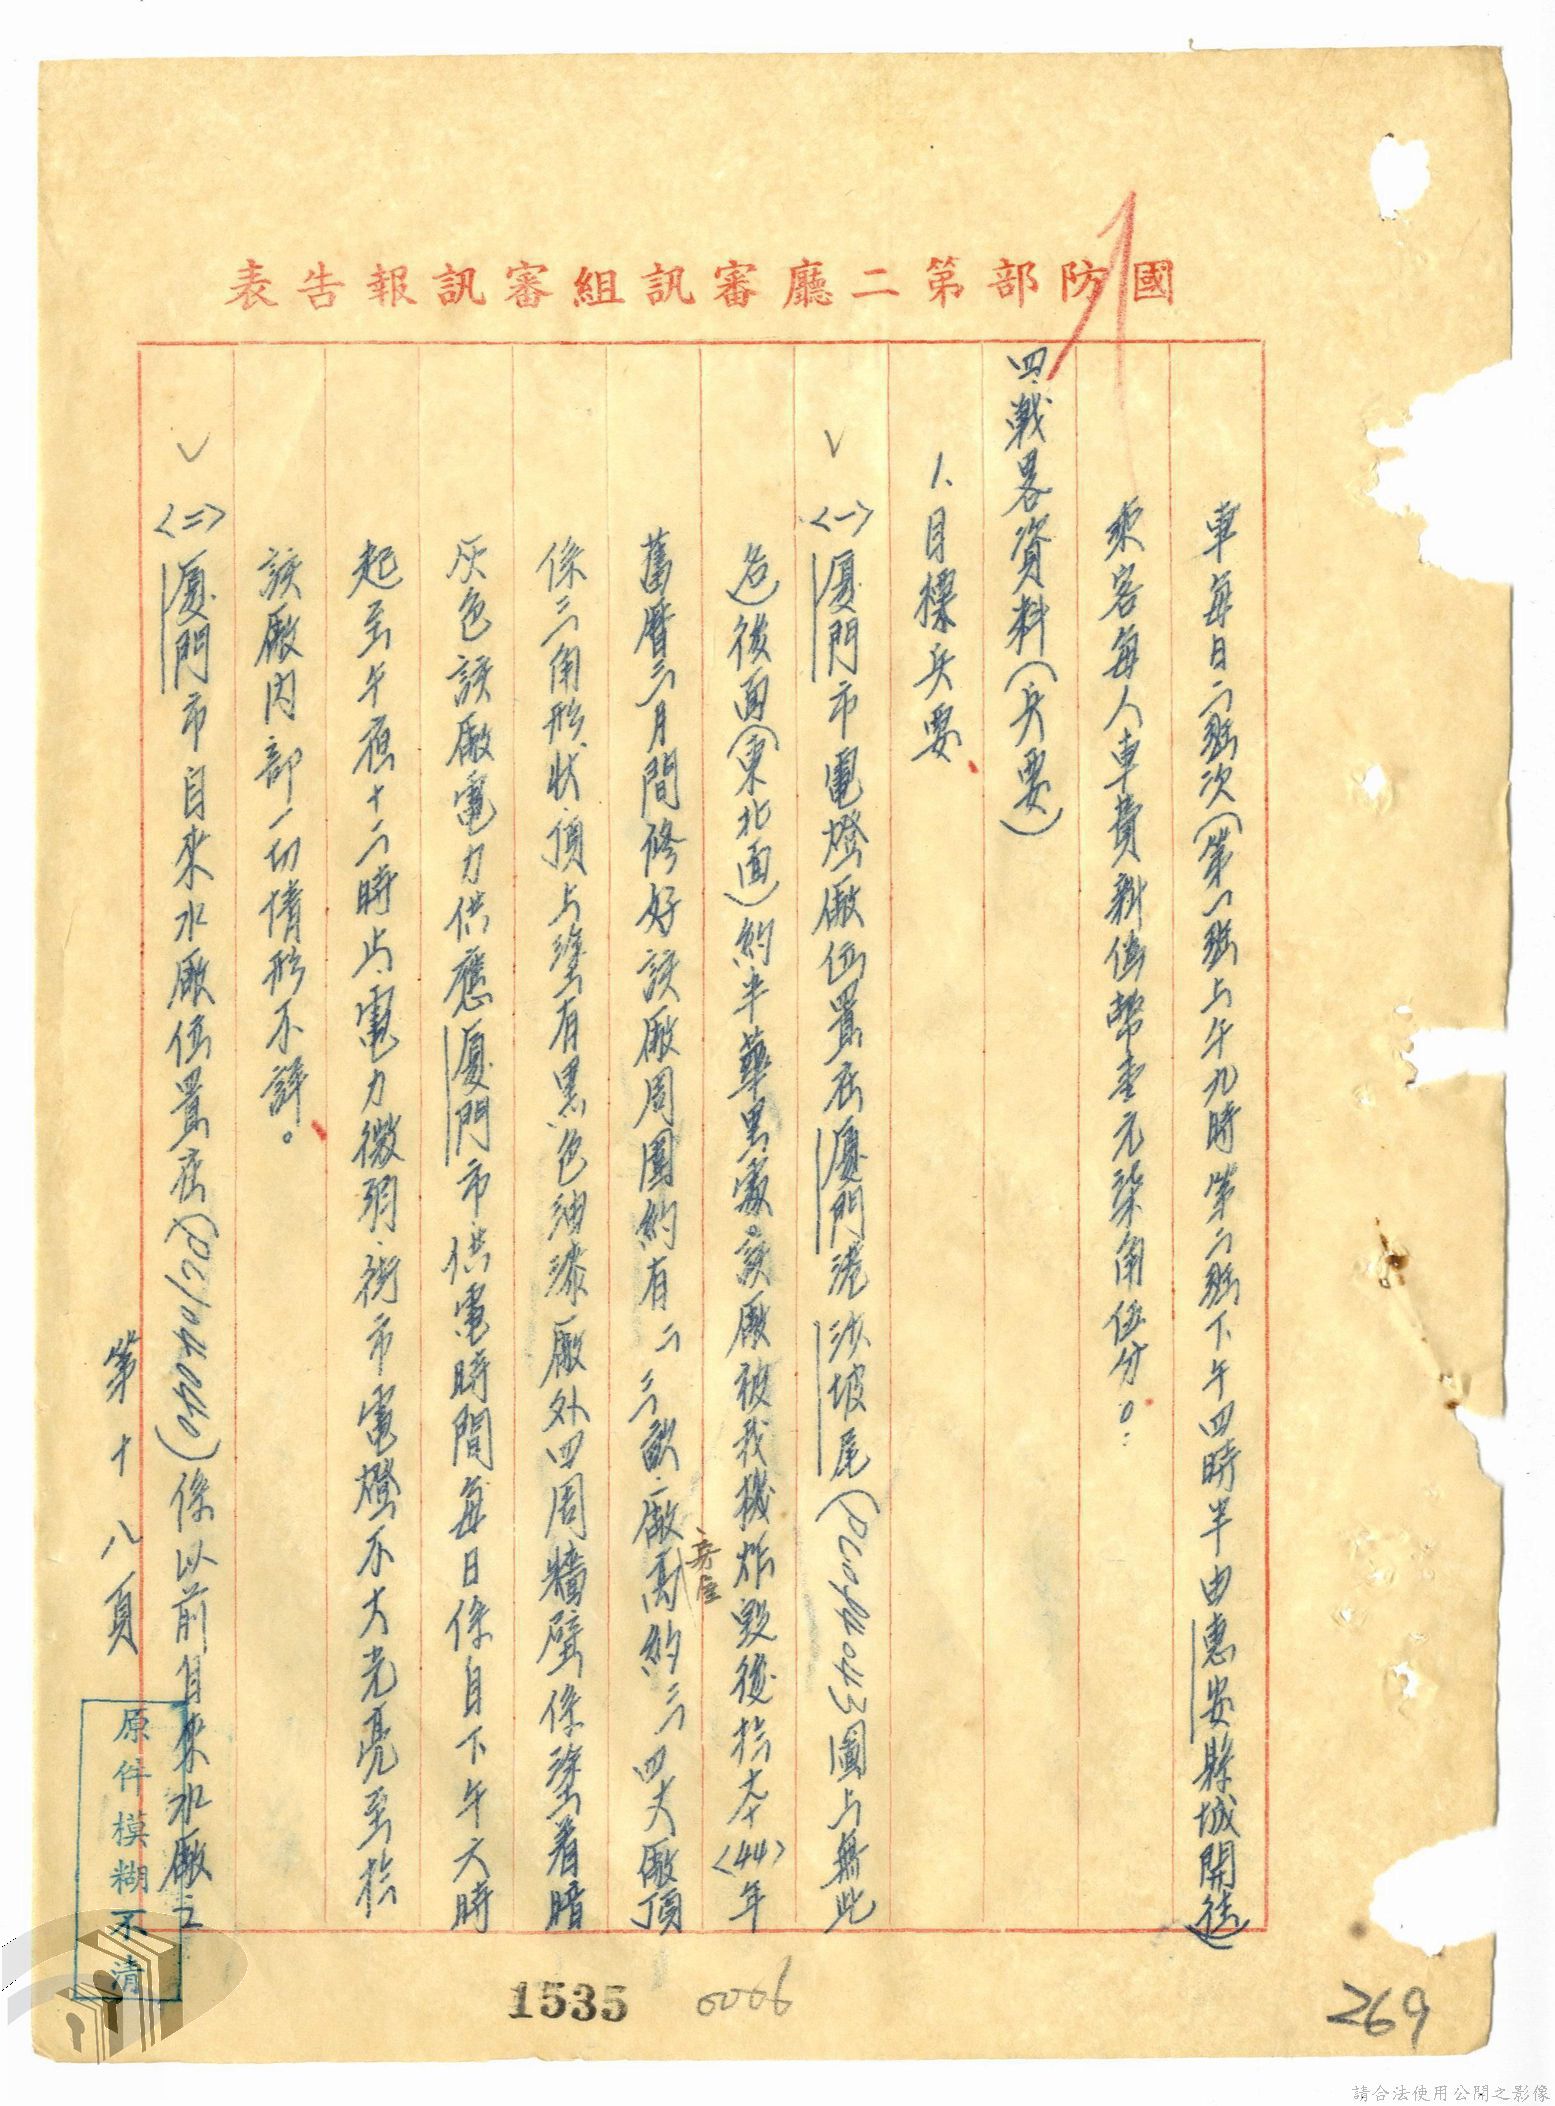 國防部第二廳審訊組審訊報告表
車每日二班次(第一班上午九時第二班下午四時半由惠安縣城開往)
乘客每人車費新偽幣壹元柒角伍分。
四、戰畧資料(兵要)
1、目標兵要
〈一〉厦門市電燈廠位置在厦門港沙坡尾(圖上無此
名)後面(東北面)約半華里處。該廠被我機炸毀後於本〈44〉年
舊曆三月間修好該廠周圍約有二三畝、廠房屋高約三四丈廠頂
係三角形狀、頂上塗有黑色油漆廠外四周牆壁係塗着暗
灰色該廠電力供應厦門市供電時間每日係自下午六時
起至午夜十二時止、電力微弱、街市電燈不大光亮至於
該廠內部一切情形不詳。
〈二〉厦門市自來水廠位置在(PC/040440)係以前自來水廠之
第十八頁
原件模糊不清
1535
0006
269
請合法使用公開之影像